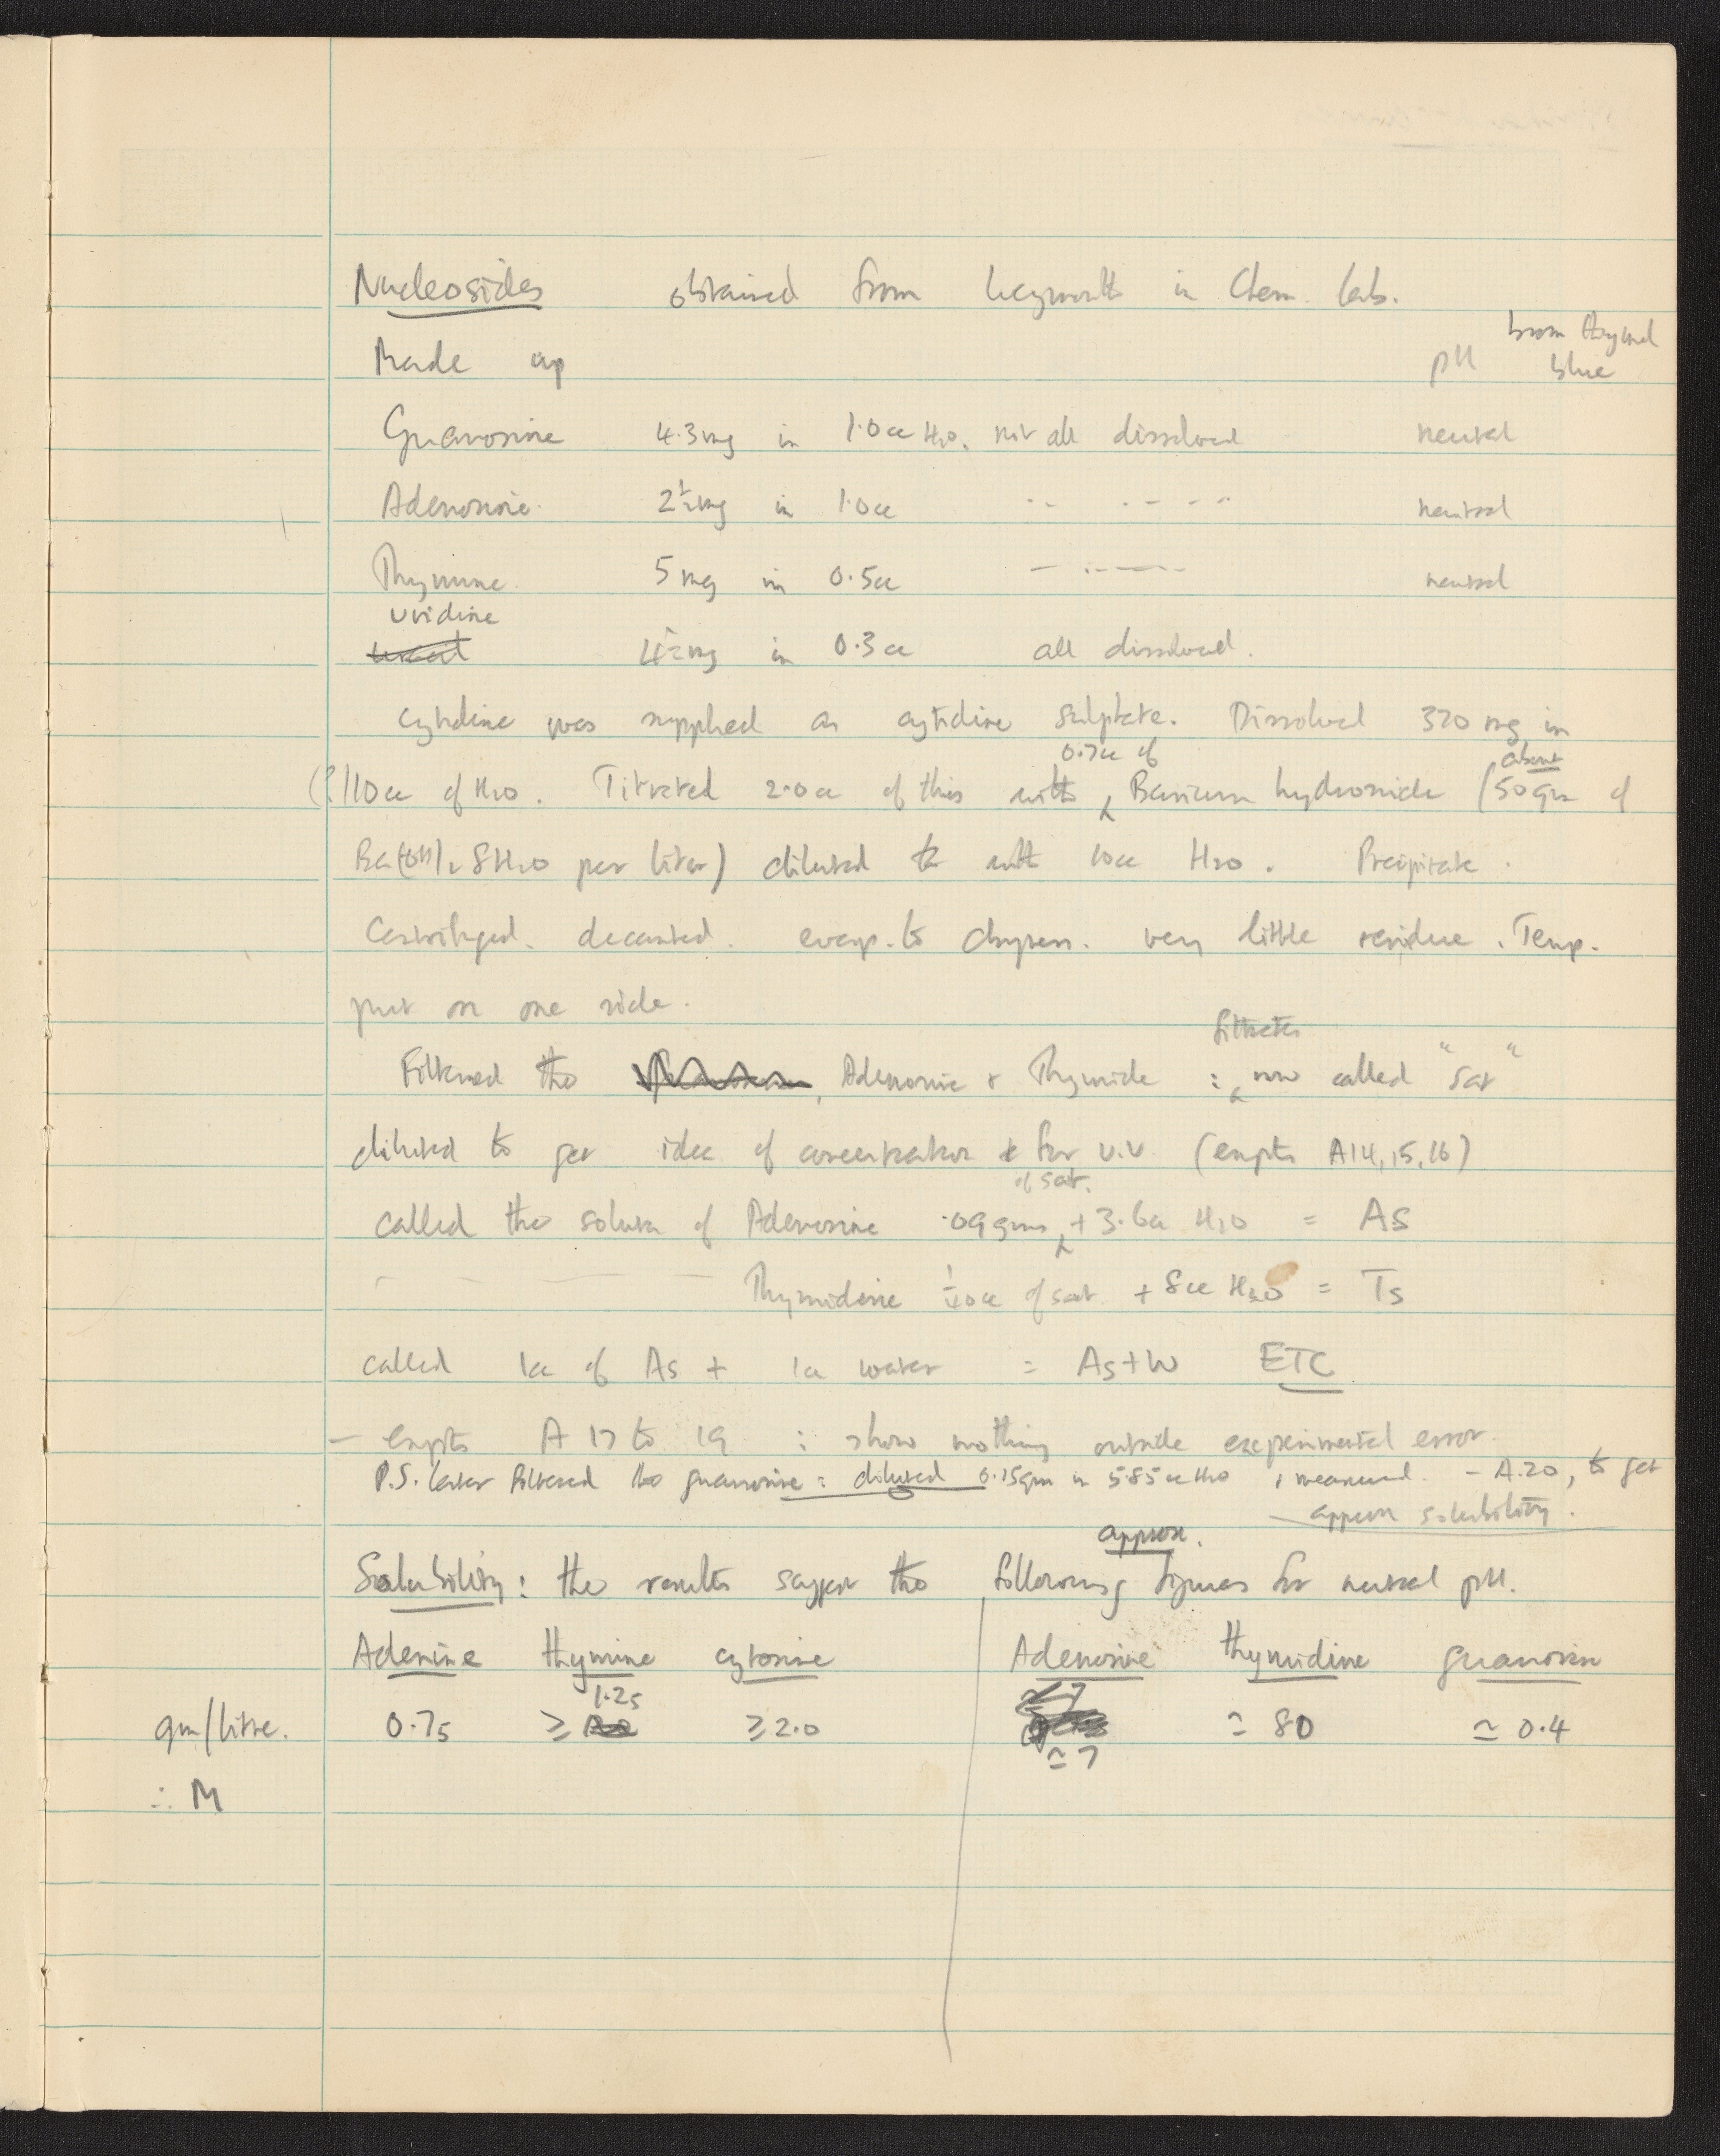 Nucleosides obtained from in Chem. lab.
Made up pH brom thymol
blue
Guanosine 4.3 mg in 1.0cc H2O. not all dissolved neutral
Adenosine. 2½mg in 1.0cc " " neutral
Thymine. 5 mg in 0.5cc " " neutral
uridine
4½mg in 0.3cc all dissolved.
Cytidine was supplied as cytidine sulphate. Dissolved 320 mg in
0.7cc of about
(?)10cc of H2O. Titrated 2.0cc of this with Barium hydroxide (50gm of
Ba(OH)2 8H2O per liter) diluted with 10cc H2O. Precipitate.
Centrifuged. decanted. evap. to dryness. very little residue. Temp.
put on one side.
filtrates
Filtered the Adenosine & Thymide : now called "Sat"
diluted to get idea of concentration & for U.V. (expts A14, 15, 16)
of sat.
called the solution of Adenosine .09gms + 3.6cc H2O = As
Thymidine 1/10cc of sat. + 8cc H2O = Ts
called 1cc of As + 1cc water = As+W ETC
- expts A 17 to 19 : show nothing outside experimental error.
P.S. later filtered the guanosine: diluted 0.15gm in 5.85cc H2O & measured. - A.20, to get
approx solubility.
approx.
Solubility: the results suggest the following figures for neutral pH.
Adenine thymine cytosine Adenosine thymidine guanosine
1.25
gm/litre. 0.75 ≥ ≥2.0 ≃ 80 ≃ 0.4
≃ 7
∴ M